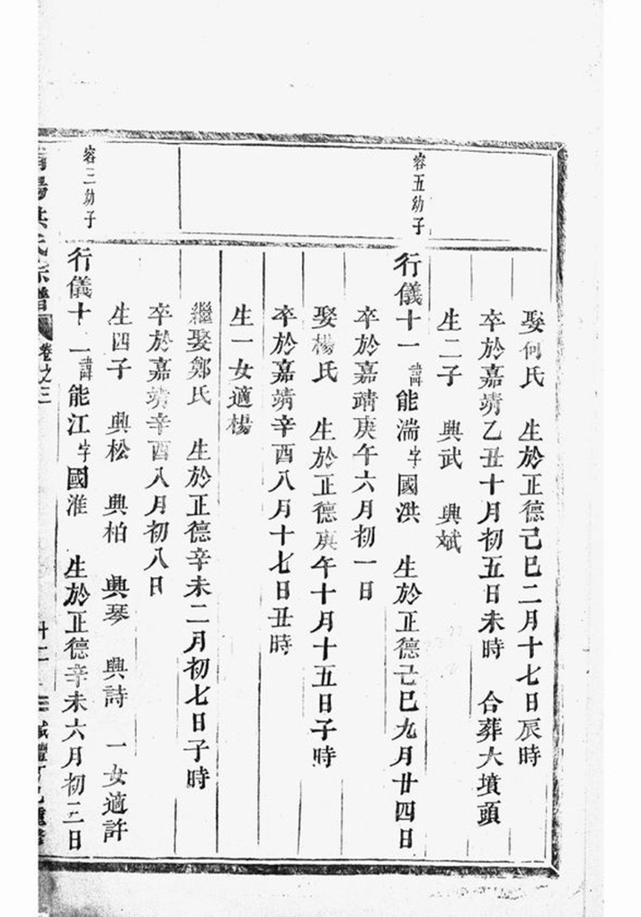 娶何氏 生於正德己巳二月十七日辰時
卒於嘉靖乙丑十月初五日未時 合葬大墳頭
生二子 興武 興斌
容五幼子
行儀十一諱能湍字國洪 生於正德己巳九月廿四日
卒於嘉靖庚午六月初一日
娶楊氏 生於正德庚午十月十五日子時
卒於嘉靖辛酉八月十七日丑時
生一女適楊
繼娶鄭氏 生於正德辛未二月初七日子時
卒於嘉靖辛酉八月初八日
生四子 興松 興柏 興琴 興詩 一女適許
容三幼子
行儀十二諱能江字國淮 生於正德辛未六月初三日
洪氏宗譜 卷之三 廿二